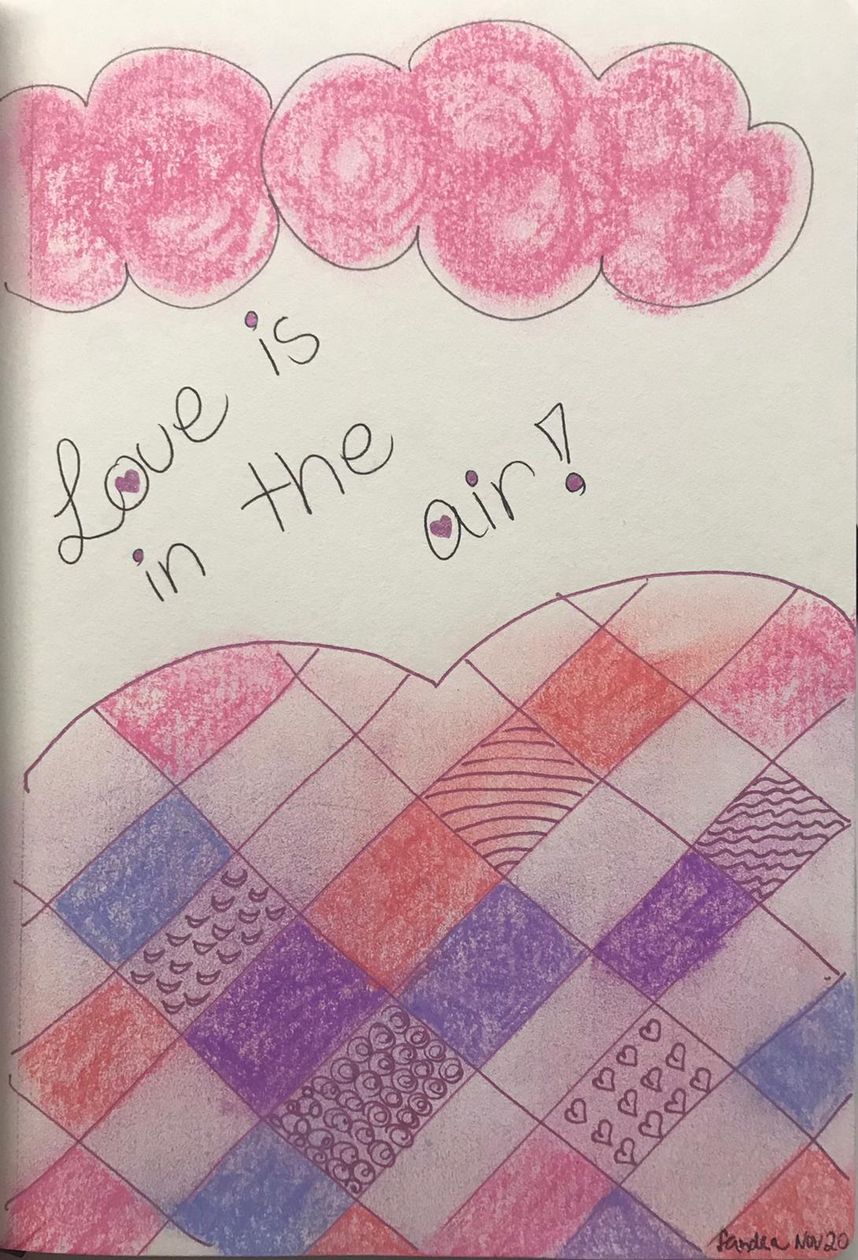 Love is
in the
air!
Sandra Nov 20